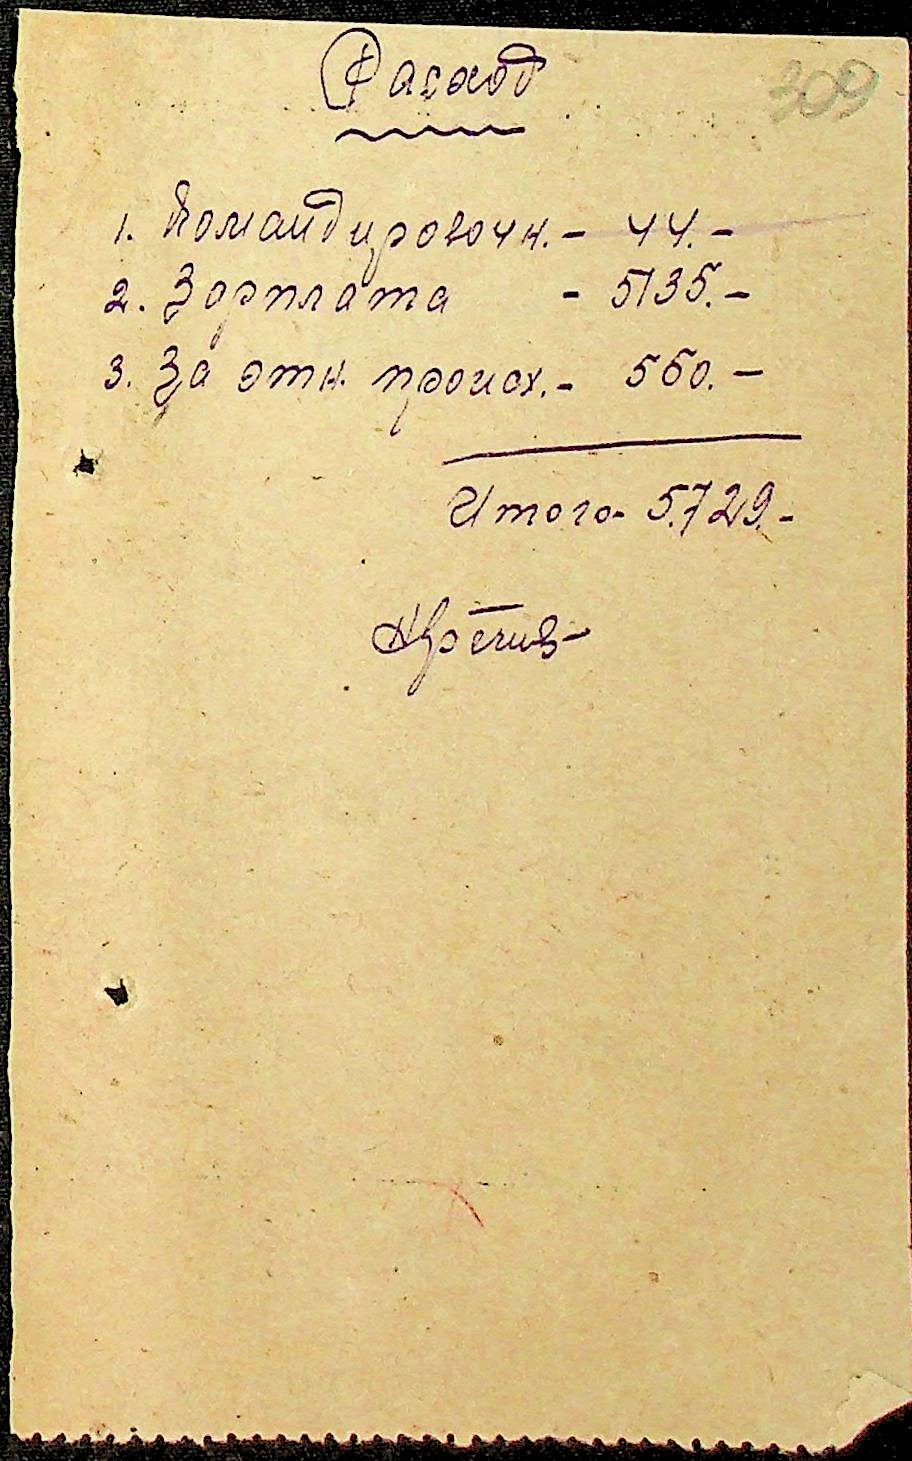 309
Расход
1. Командировочн. - 44.-
2. Зарплата - 5135.-
3. За отн. происх. - 550. -
Итого - 5.729.-